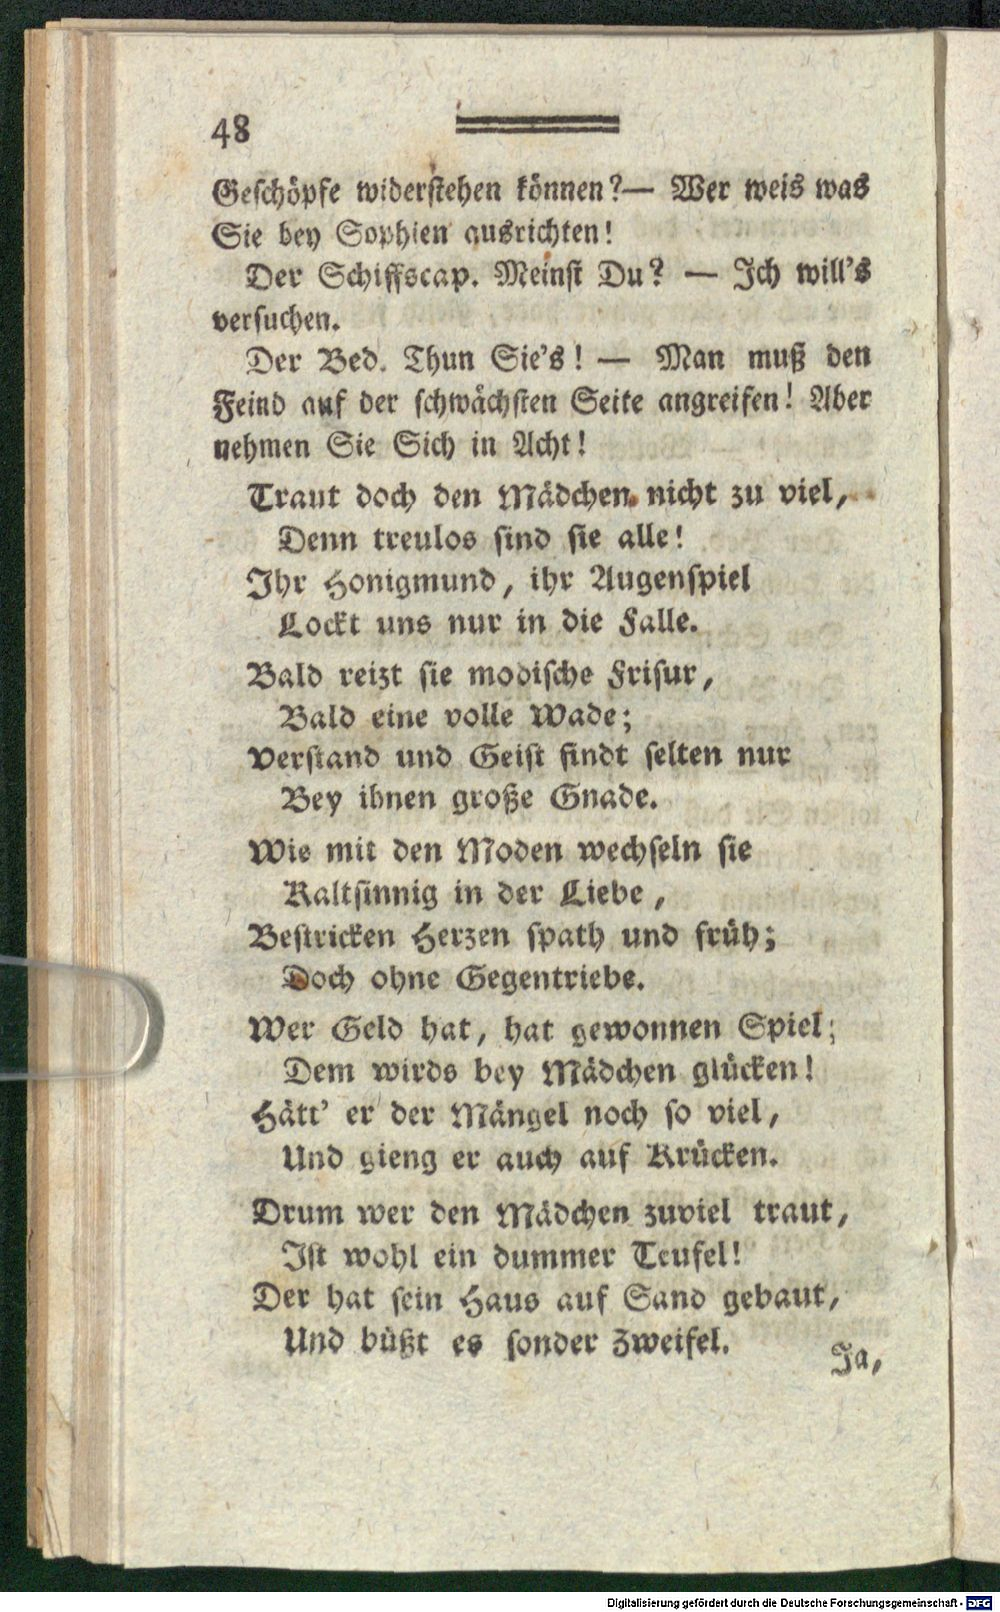 48
Geschöpfe widerstehen können?— Wer weis was
Sie bey Sophien ausrichten!
Der Schiffscap. Meinst Du? — Ich will's
versuchen.
Der Bed. Thun Sie's! — Man muß den
Feind auf der schwächsten Seite angreifen! Aber
nehmen Sie Sich in Acht!
Traut doch den Mädchen nicht zu viel,
Denn treulos sind sie alle!
Ihr Honigmund, ihr Augenspiel
Lockt uns nur in die Falle.
Bald reizt sie modische Frisur,
Bald eine volle Wade;
Verstand und Geist findt selten nur
Bey ihnen große Gnade.
Wie mit den Moden wechseln sie
Kaltsinnig in der Liebe,
Bestricken Herzen spath und früh;
Doch ohne Gegentriebe.
Wer Geld hat, hat gewonnen Spiel;
Dem wirds bey Mädchen glücken!
Hätt' er der Mängel noch so viel,
Und gieng er auch auf Krücken.
Drum wer den Mädchen zuviel traut,
Ist wohl ein dummer Teufel!
Der hat sein Haus auf Sand gebaut,
Und büßt es sonder Zweifel.
Ja,
Digitalisierung gefördert durch die Deutsche Forschungsgemeinschaft - DFG